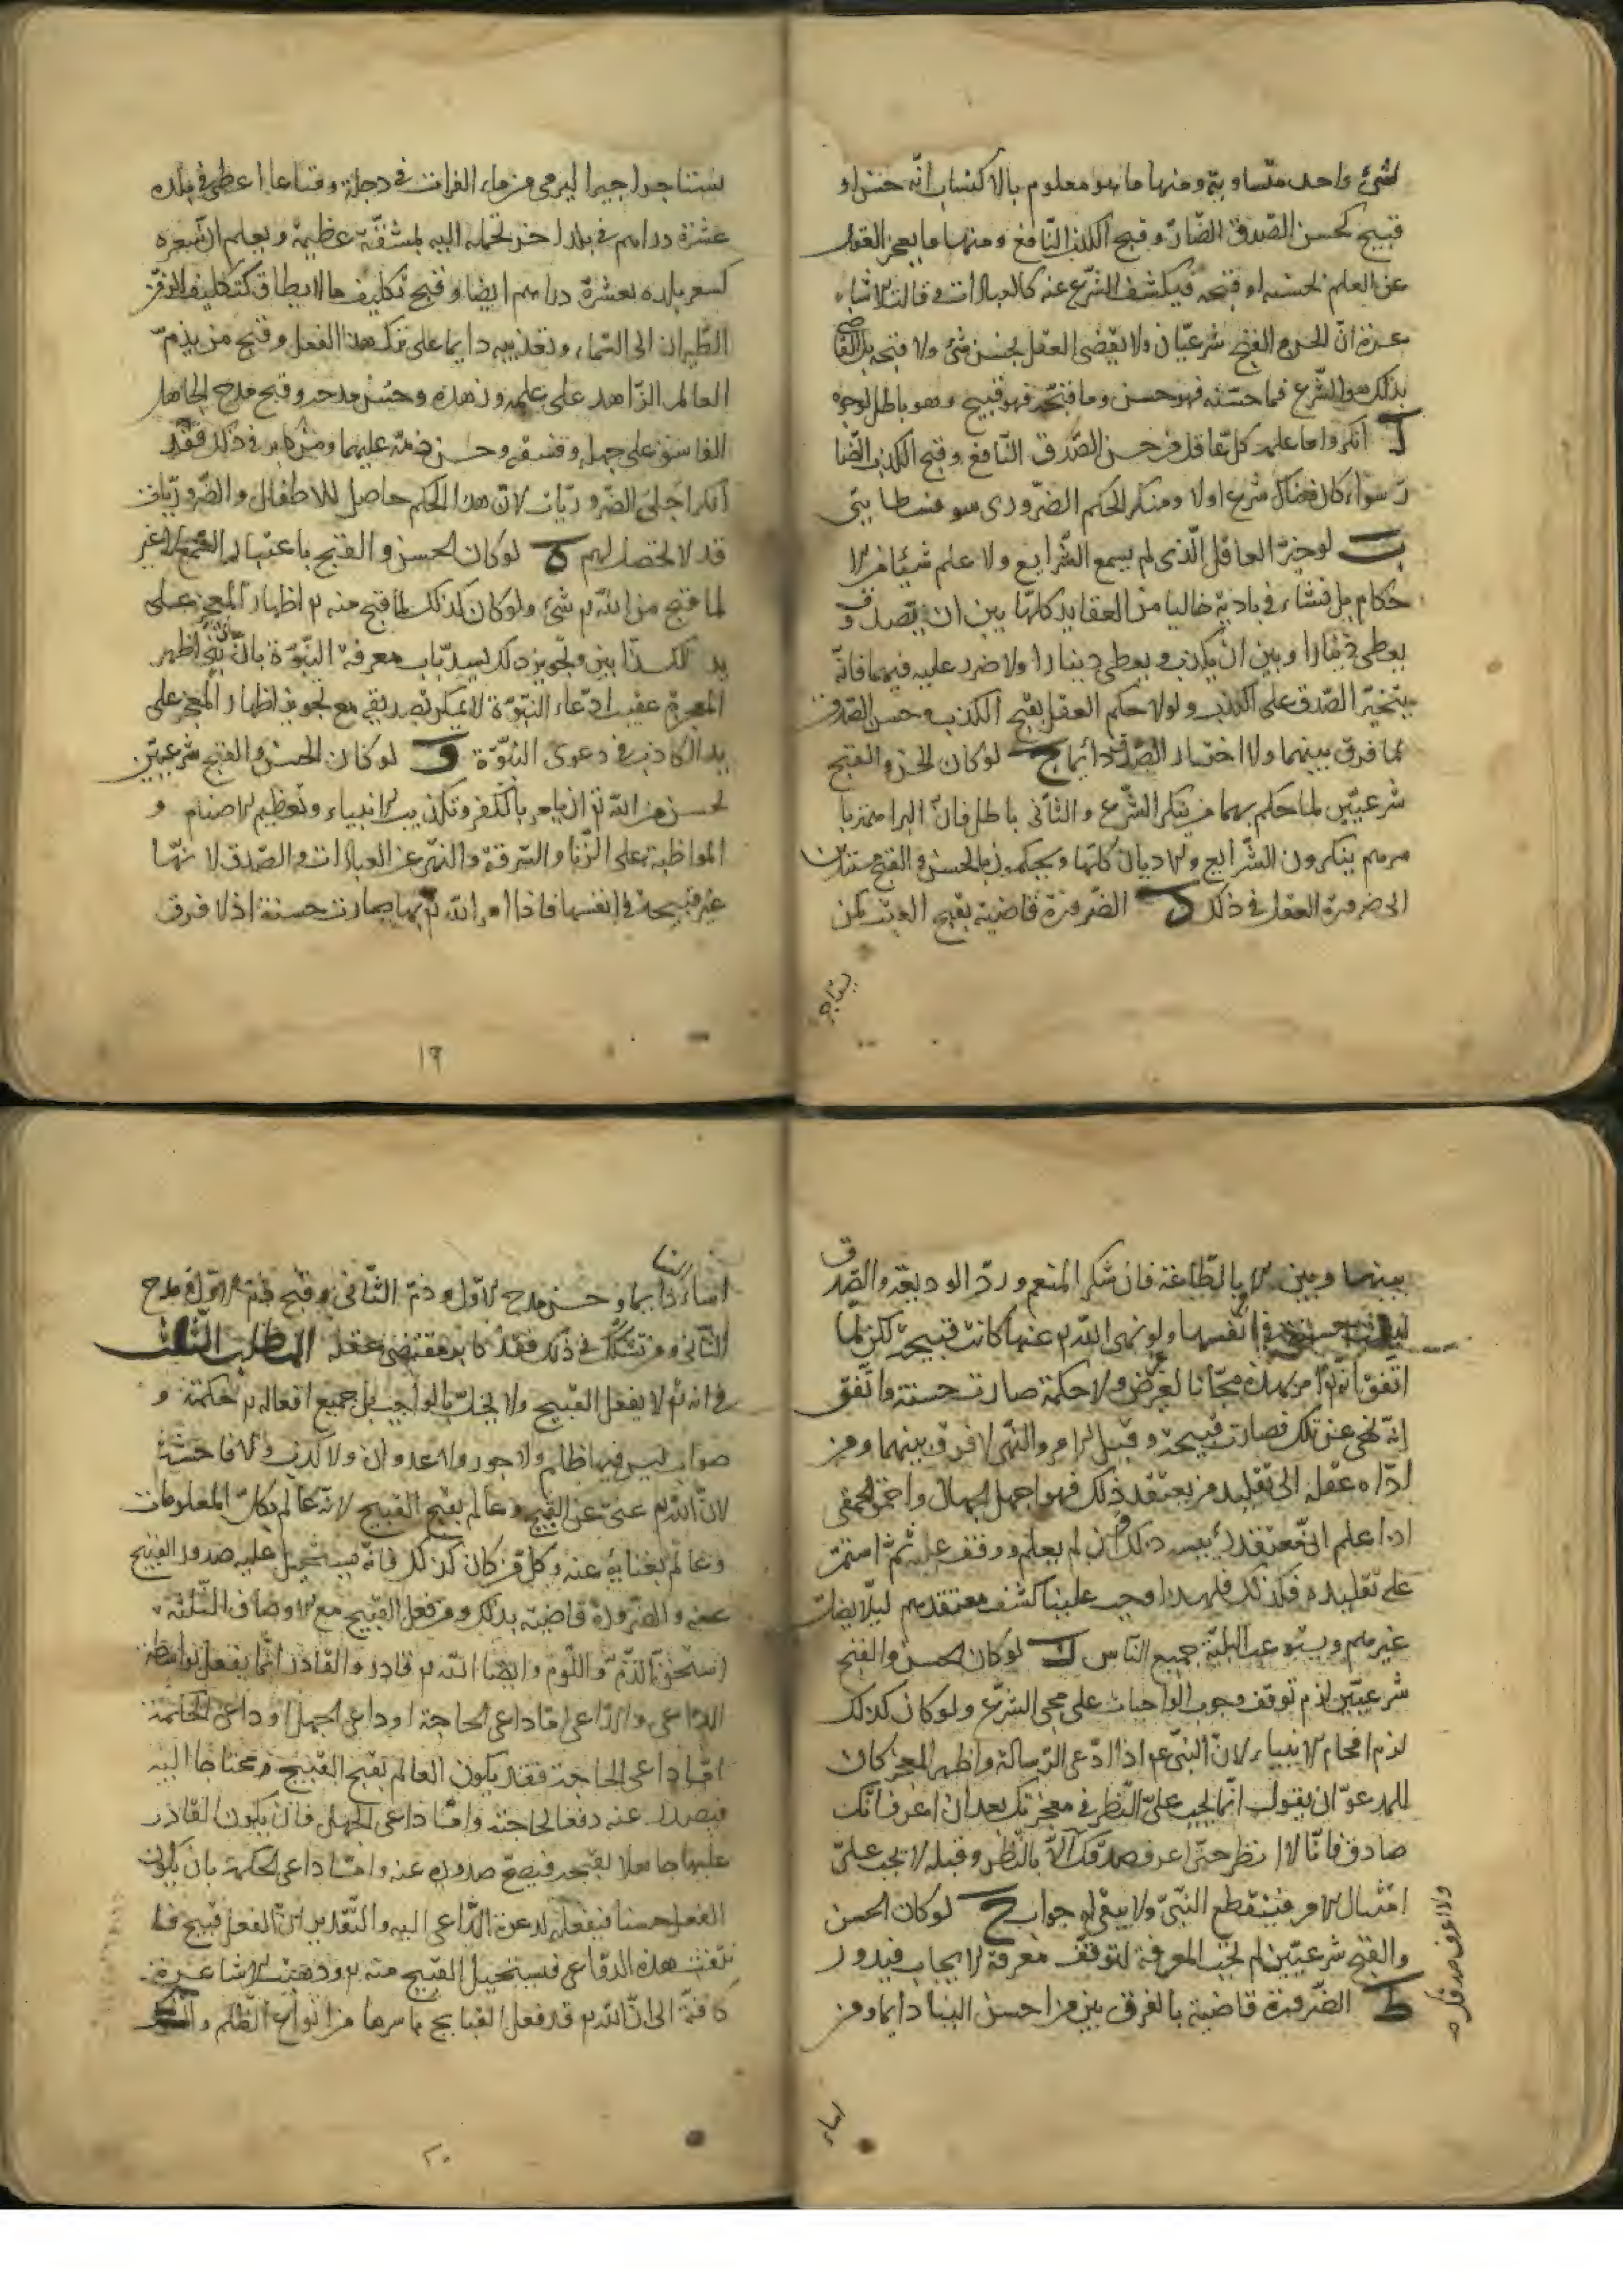 لشئ واحد متساوية ومنها ما هو معلوم بالاكتساب انّه حسن او
قبيح كحسن الصّدق الضّارّ وقبح الكذب النّافع ومنها ما يعجز العقول
عن العلم بحسنه او قبحه فيكشف الشّرع عنه كالعبادات وقالت الاشا
عرة انّ الحسن والقبح شرعيّان ولا يقضى العقل بحسن شئ ولا قبحه بل القاضى
بذلك هو الشّرع فما حسّنه فهو حسن وما قبّحه فهو قبيح وهو باطل لوجوه
ا انكروا ما علمه كلّ عاقل من حسن الصّدق النّافع وقبح الكذب الضّا
رّ سواء كان هناك شرع اولا ومنكر الحكم الضّرورى سوفسطايىّ
ب لو خيّر العاقل الّذى لم يسمع الشّرايع ولا علم شيئا من الا
حكام بل نشاء فى بادية خاليا من العقايد كلّها بين ان يصدق و
يعطى دينارا وبين ان يكذب ويعطى دينارا ولا ضرر عليه فيهما فانّه
يتخيّر الصّدق على الكذب ولولا حكم العقل بقبح الكذب وحسن الصّدق
لما فرق بينهما ولا اختار الصّدق دائما ج لو كان الحسن والقبح
شرعيّين لما حكم بهما من ينكر الشّرع والثّانى باطل فانّ البراهمة با
سرهم ينكرون الشّرايع والاديان كلّها ويحكمون بالحسن والقبح مستندين
الى ضرورة العقل فى ذلك د الضّرورة قاضية بقبح العبث كمن
يستاجر
يستاجر اجيرا ليرمى من ماء الفرات فى دجلة ومتاعا اعطى فى بلده
عشرة دراهم فى بلد اخر يحمله اليه بمشقّة عظيمة ويعلم انّ سعره
كسعر بلده بعشرة دراهم ايضا وقبح تكليف ما لا يطاق كتكليف الزمن
الطّيران الى السّماء وتعذيبه دايما على ترك هذا الفعل وقبح من يذمّ
العالم الزّاهد على علمه وزهده وحسن مدحه وقبح مدح الجاهل
الفاسق على جهله وفسقه وحسن ذمّه عليهما ومن كابر فى ذلك فقد
انكر اجلى الضّروريّات لانّ هذا الحكم حاصل للاطفال والضّروريّات
قد لا تحصل لهم ه لو كان الحسن والقبح باعتبار السّمع لا غير
لما قبح من اللّه تع شئ ولو كان كذلك لما قبح منه تع اظهار المعجز على
يد الكذّابين وتجويز ذلك يسدّ باب معرفة النّبوّة فانّ اىّ نبىّ اظهر
المعجزة عقيب ادّعاء النّبوّة لا يمكن تصديقه مع تجويز اظهار المعجز على
يد الكاذب فى دعوى النّبوّة و لو كان الحسن والقبح شرعيّين
لحسن من اللّه تع ان يامر بالكفر وتكذيب الانبياء وتعظيم الاصنام و
المواظبة على الزّنا والسّرقة والنهى عن العبادات والصّدق لانّها
غير قبيحة فى انفسها فاذا امر اللّه تع بها صارت حسنة اذ لا فرق
١٩
بينهما وبين الامر بالطّاعة فان شكر المنعم وردّ الوديعة والصّدق
ليست حسنة فى انفسها ولو نهى اللّه تع عنها كانت قبيحة لكن لمّا
اتّفق انّه تع امر بهذه مجّانا لغير غرض ولا حكمة صارت حسنة واتّفق
انّه نهى عن تلك فصارت قبيحة وقبل الامر والنّهى لا فرق بينهما ومن
ادّاه عقله الى تقليد من يعتقد ذلك فهو اجهل الجهال واحمق الحمقى
اذا علم انّ معتقد رئيسه ذلك وان لم يعلم ووقف عليه ثمّ استمرّ
على تقليده فكذلك فلهذا وجب علينا كشف معتقدهم ليلّا يضلّ
غيرهم ويستوعب البليّة جميع النّاس ز لو كان الحسن والقبح
شرعيّين لزم توقف وجوب الواجبات على مجى الشّرع ولو كان كذلك
لزم افحام الانبياء لانّ النبىّ ع اذا ادّعى الرّسالة واظهر المعجز كان
للمدعوّ ان يقول انّما يجب علىّ النّظر فى معجزتك بعد ان اعرف انّك
صادق فانّا لا انظر حتّى اعرف صدقك الّا بالنّظر وقبله لا يجب علىّ
امتثال الامر فينقطع النّبىّ ولا يبقى له جواب ح لو كان الحسن
والقبح شرعيّين لم تجب المعرفة لتوقّف معرفة الايجاب فيدور
ط الضّرورة قاضية بالفرق بين من احسن الينا دايما ومن
ولا اعرف صدقك صح
اساء
الينا
اساء دايما وحسن مدح الاوّل وذمّ الثّانى وقبح ذمّ الاوّل ومدح
الثّانى ومن تشكّك فى ذلك فقد كابر مقتضى عقله المطلب الثّالث
فى انه تع لا يفعل القبيح ولا يخلّ بالواجب بل جميع افعاله تع حكمة و
صواب ليس فيها ظلم ولا جور ولا عدوان ولا كذب ولا فاحشة
لانّ اللّه تع غنىّ عن القبيح وعالم بقبح القبيح لانّه عالم بكلّ المعلومات
وعالم بغنايه عنه وكلّ من كان كذلك فانّه يستحيل عليه صدور القبيح
عنه والضّرورة قاضية بذلك ومن فعل القبيح مع الاوصاف الثّلثة
استحقّ الذّمّ واللّوم وايضا اللّه تع قادر والقادر انّما يفعل بواسطة
الدّاعى والدّاعى امّا داعى الحاجة او داعى الجهل او داعى الحكمة
امّا داعى الحاجة فقد يكون العالم بقبح القبيح محتاجا اليه
فيصدر عنه دفعا لحاجته وامّا داعى الجهل فان يكون القادر
عليها جاهلا بقبحه فيصحّ صدوره عنه وامّا داعى الحكمة بان يكون
الفعل حسنا فيفعله لدعوة الدّاعى اليه والتّقدير انّ الفعل قبيح فا
نتفت هذه الدّواعى فيستحيل القبيح منه تع وذهبت الاشاعرة
كافّة الى انّ اللّه تع قد فعل القبايح باسرها من انواع الظّلم والشّرك
٢٠